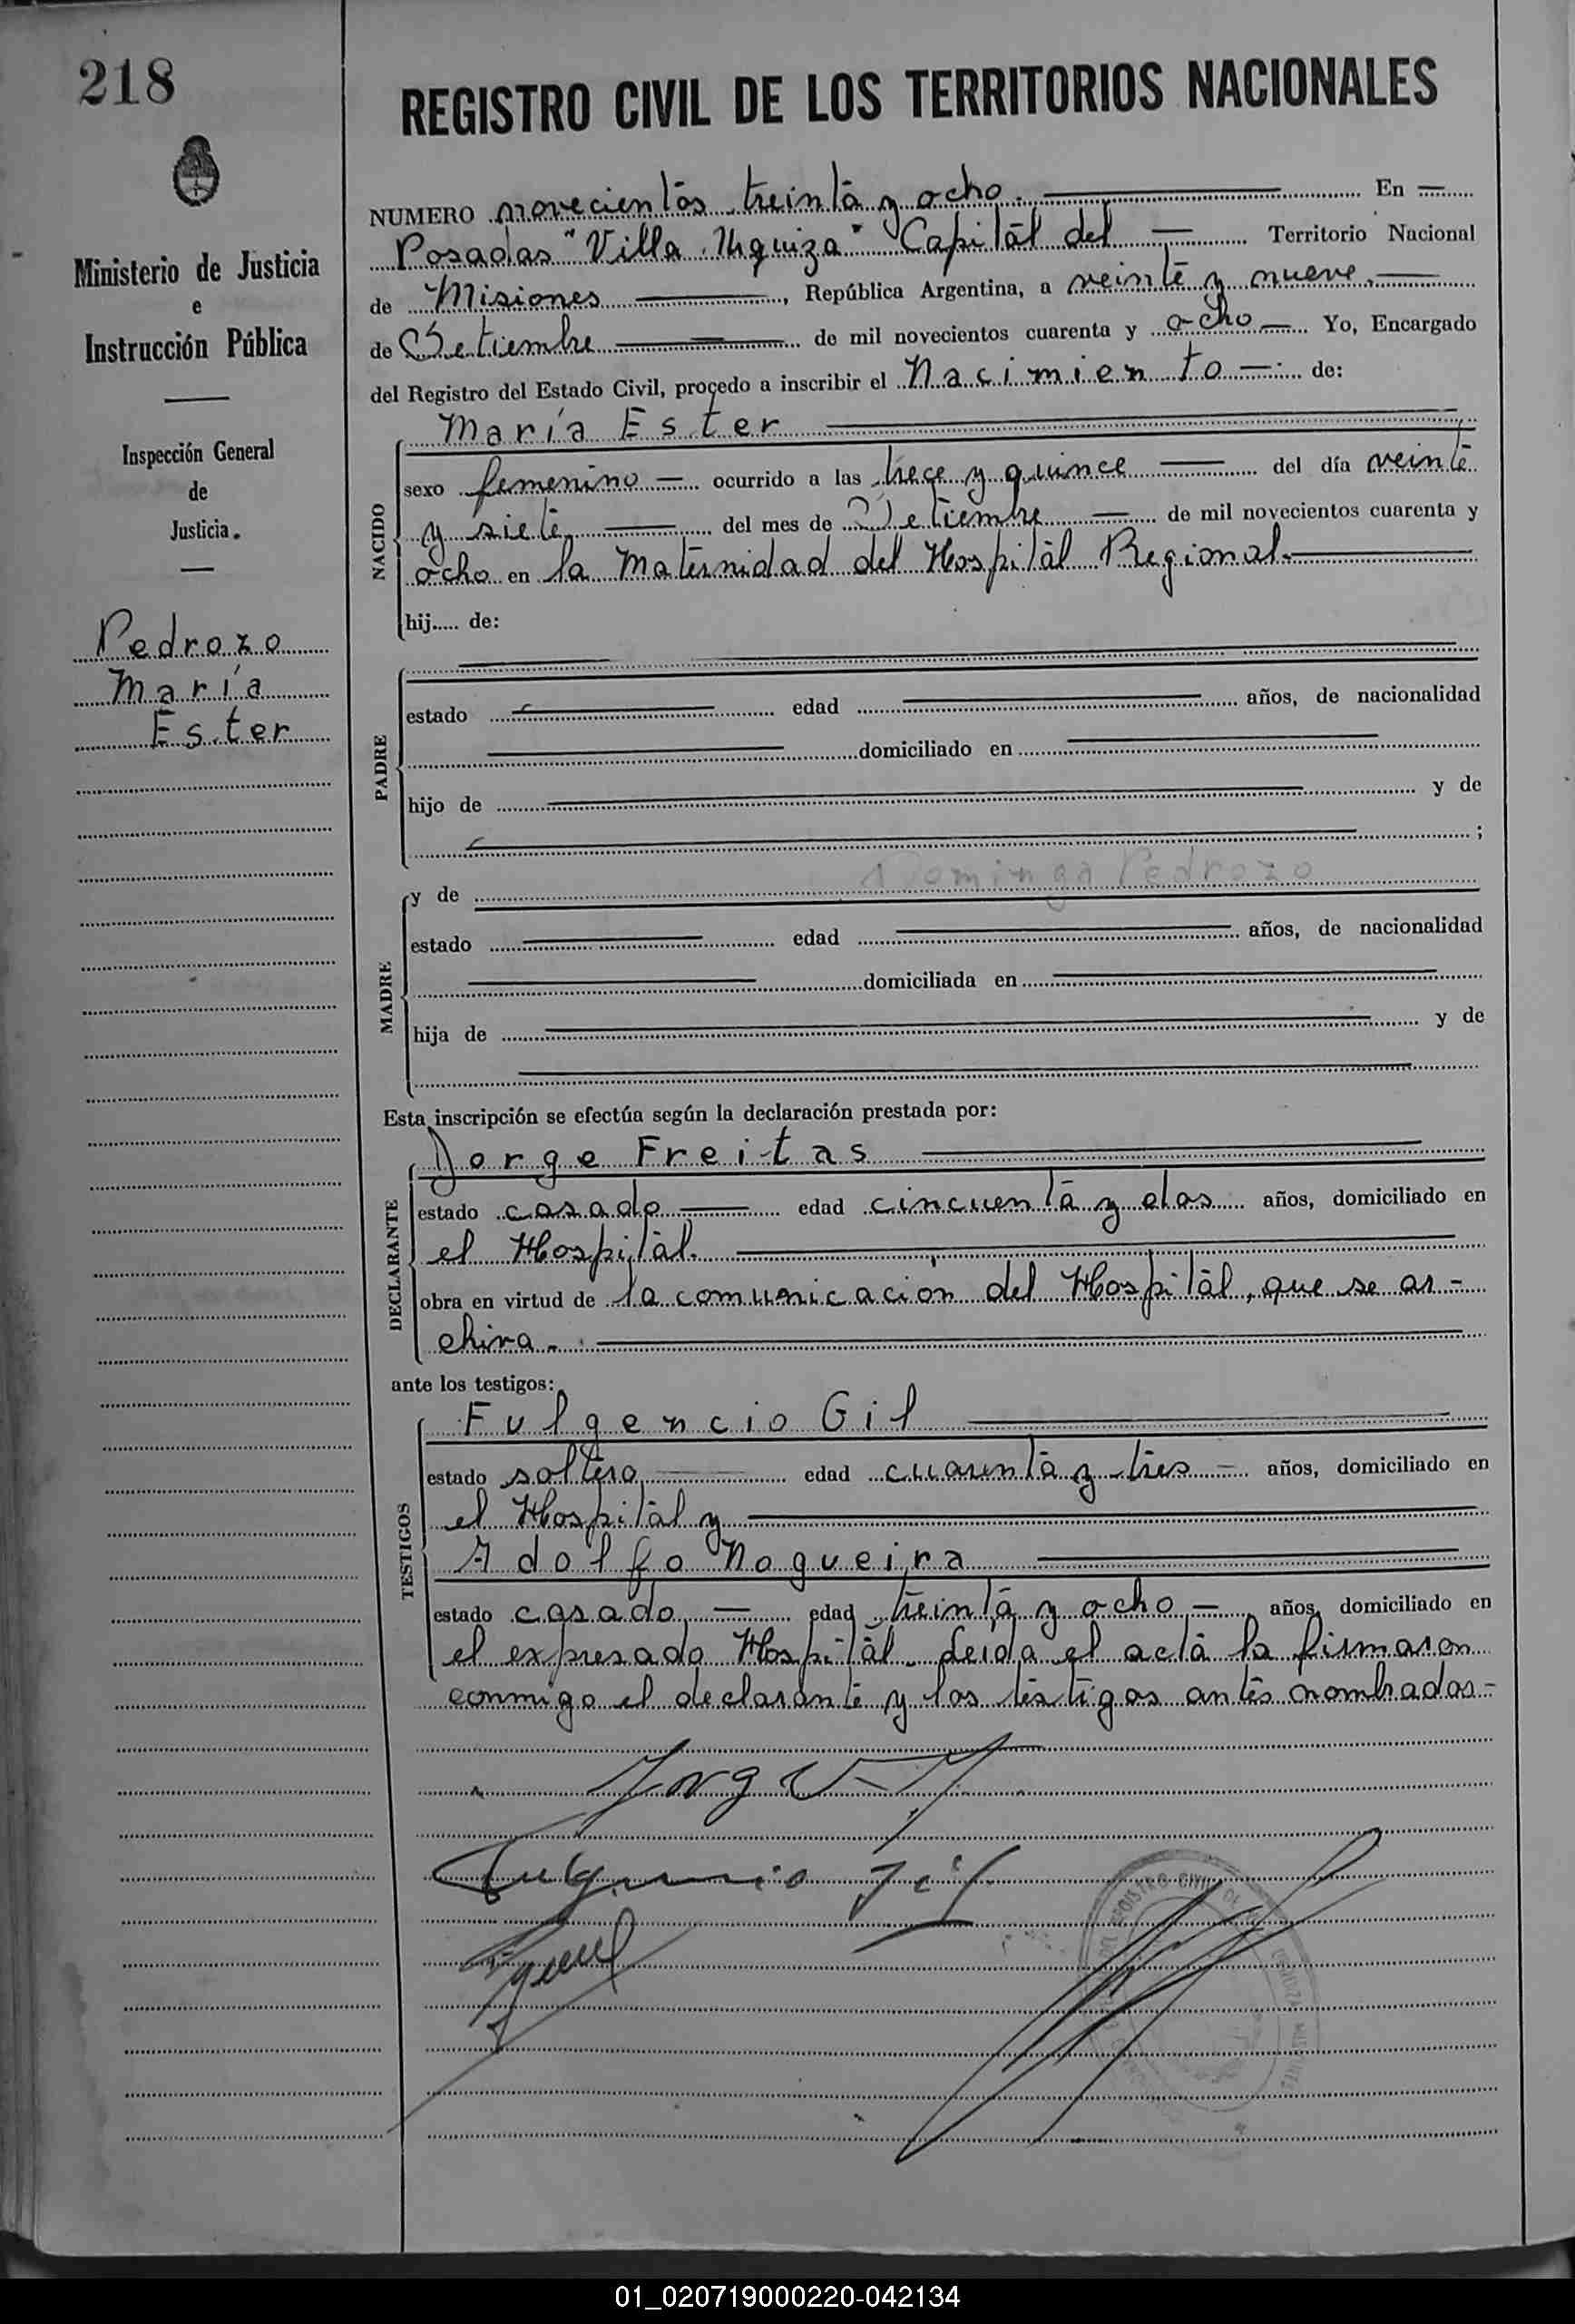 218
REGISTRO CIVIL DE LOS TERRITORIOS NACIONALES
Ministerio de Justicia
e
Instrucción Pública
Inspección General
de
Justicia.
Pedrozo
María
Ester
NUMERO novecientos treinta y ocho. En
Posadas "Villa Urquiza" Capital del Territorio Nacional
de Misiones, República Argentina, a veinte y nueve
de Setiembre de mil novecientos cuarenta y ocho Yo, Encargado
del Registro del Estado Civil, procedo a inscribir el Nacimiento de:
NACIDO
María Ester
sexo femenino ocurrido a las trece y quince del día veinte
y siete del mes de Setiembre de mil novecientos cuarenta y
ocho en la Maternidad del Hospital Regional.
hij..... de:
PADRE
estado edad años, de nacionalidad
domiciliado en
hijo de y de
;
MADRE
Dominga Pedrozo
y de
estado edad años, de nacionalidad
domiciliada en
hija de y de
Esta inscripción se efectúa según la declaración prestada por:
DECLARANTE
Jorge Freitas
estado casado edad cincuenta y dos años, domiciliado en
el Hospital.
obra en virtud de la comunicación del Hospital, que se ar-
chiva.
ante los testigos:
TESTIGOS
Fulgencio Gil
estado soltero edad cuarenta y tres años, domiciliado en
el Hospital y
Adolfo Nogueira
estado casado edad treinta y ocho años, domiciliado en
el expresado Hospital. Leída el acta la firmaron
conmigo el declarante y los testigos antes nombrados-
Fulgencio Gil
01_020719000220-042134